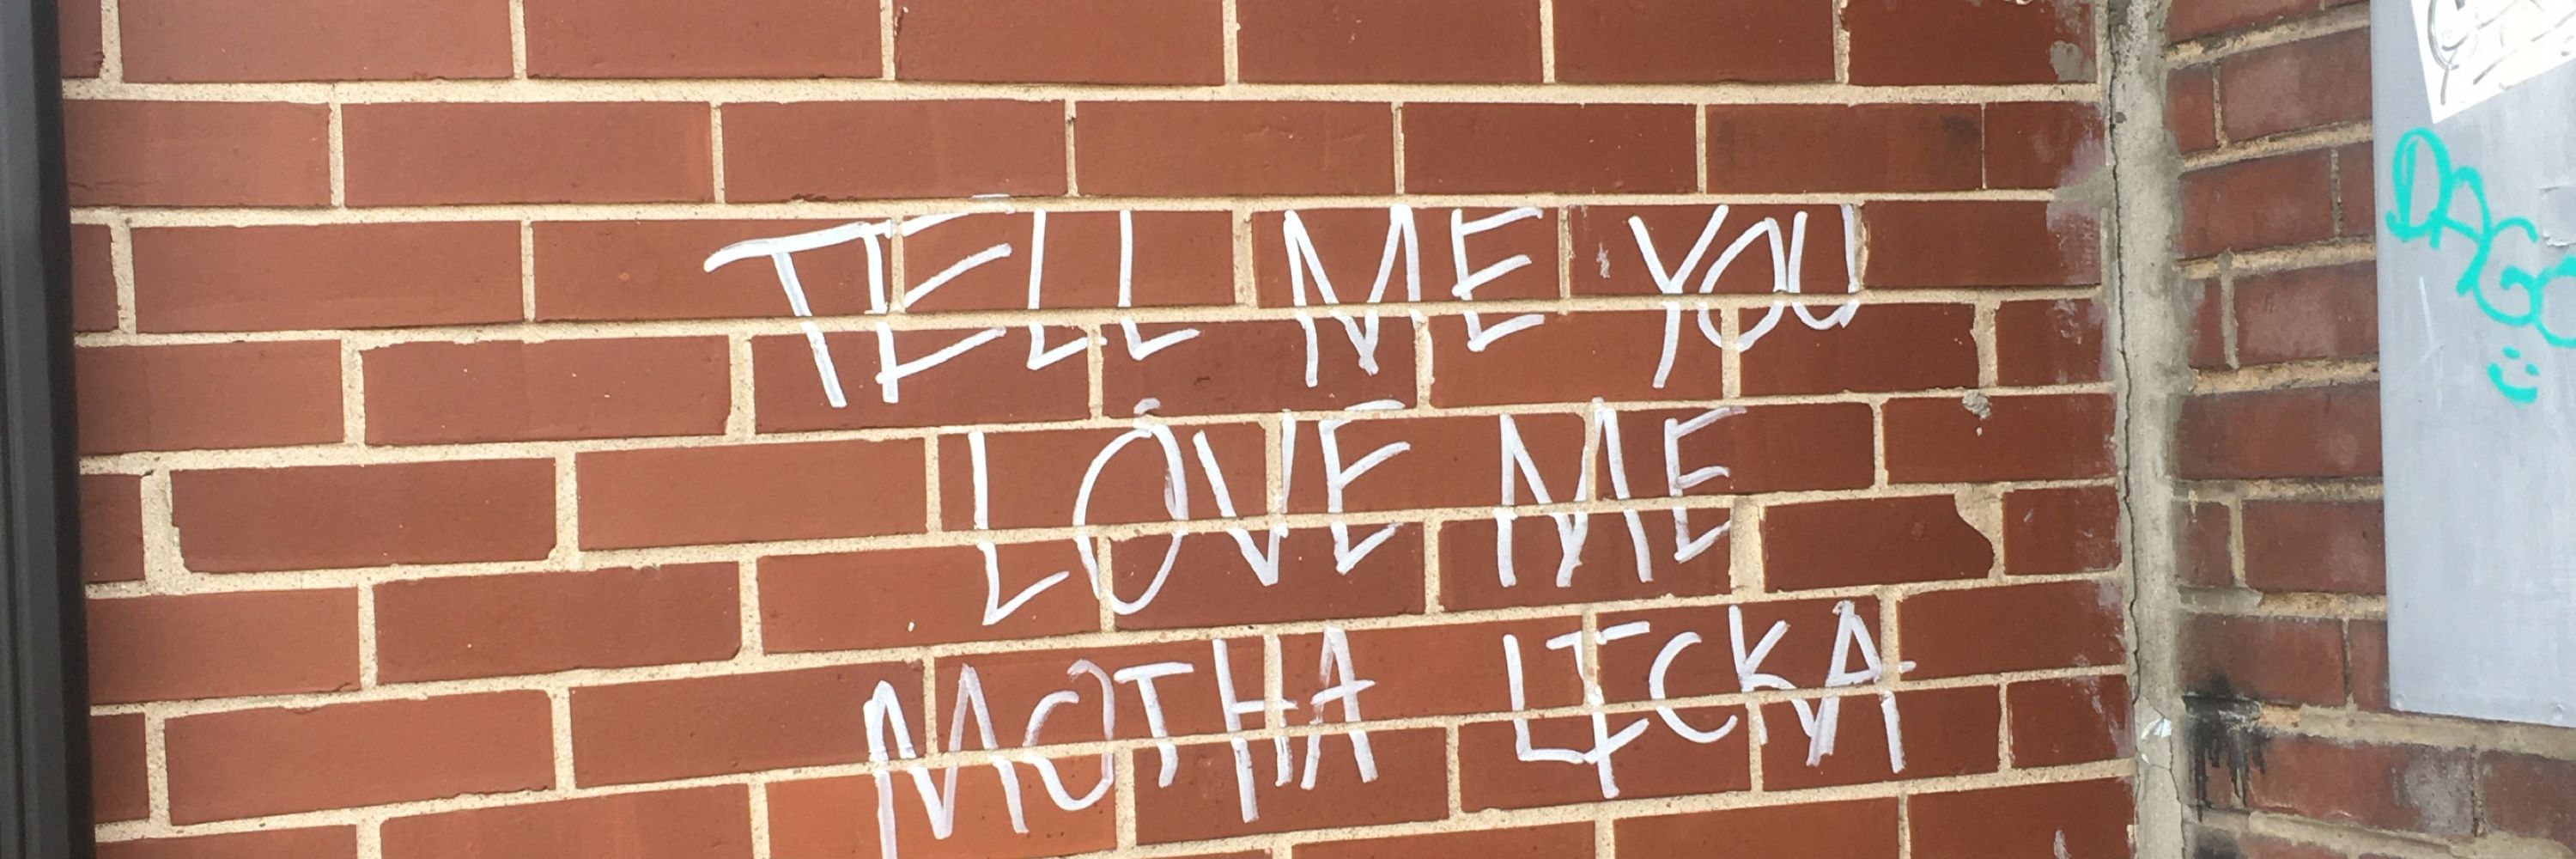 TELL ME YOU
LOVE ME
MOTHA LICKA